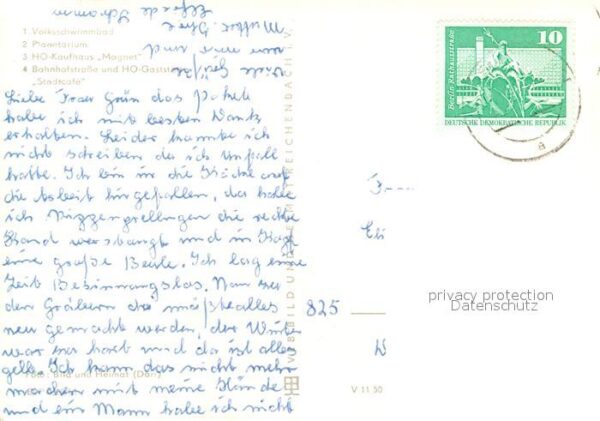 1 Volksschwimmbad
2 Planetarium
3 HO-Kaufhaus „Magnet"
4 Bahnhofstraße und HO-Gaststätte
„Stadtcafé"
Liebe Frau Grün das Paket
habe ich mit besten Dank
erhalten. Leider konnte ich
nicht schreiben da ich Unfall
hatte. Ich bin in die Küche auf
die hingefallen, da habe
ich die rechte
Hand und im Kopf
eine große Beule. Ich lag eine
Zeit Besinnungslos. Nun
den Gräbern da müßte alles
neu gemacht werden, der Winter
war so hart und da ist alles
gelb. Ich kann das nicht mehr
machen mit meine Hände
und ein Mann habe ich nicht
Viele Grüße
und
Mutter
Foto: Bild und Heimat (Dörr)
VEB BILD UND HEIMAT REICHENBACH I. V.
V 11 50
825
Berlin Rathausstraße
10
DEUTSCHE DEMOKRATISCHE REPUBLIK
a
privacy protection
Datenschutz